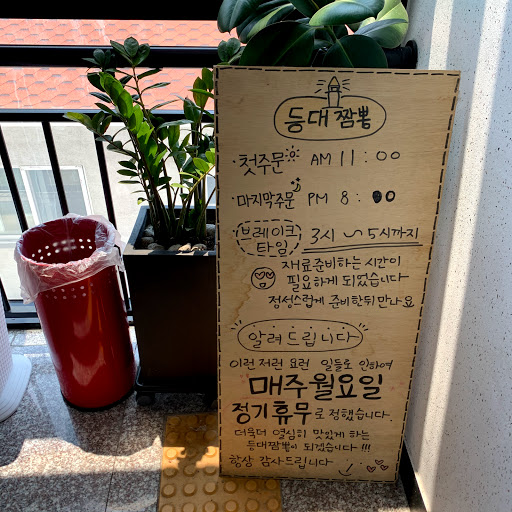 등대짬뽕
·첫주문 AM 11 : 00
·마지막주문 PM 8 : 00
브레이크
타임 3시 ~ 5시까지
재료준비하는 시간이
필요하게 되었습니다
정성스럽게 준비한뒤 만나요
알려드립니다
이런 저런 요런 일들로 인하여
매주월요일
정기휴무로 정했습니다.
더욱더 열심히 맛있게 하는
등대짬뽕이 되겠습니다!!!
항상 감사드립니다